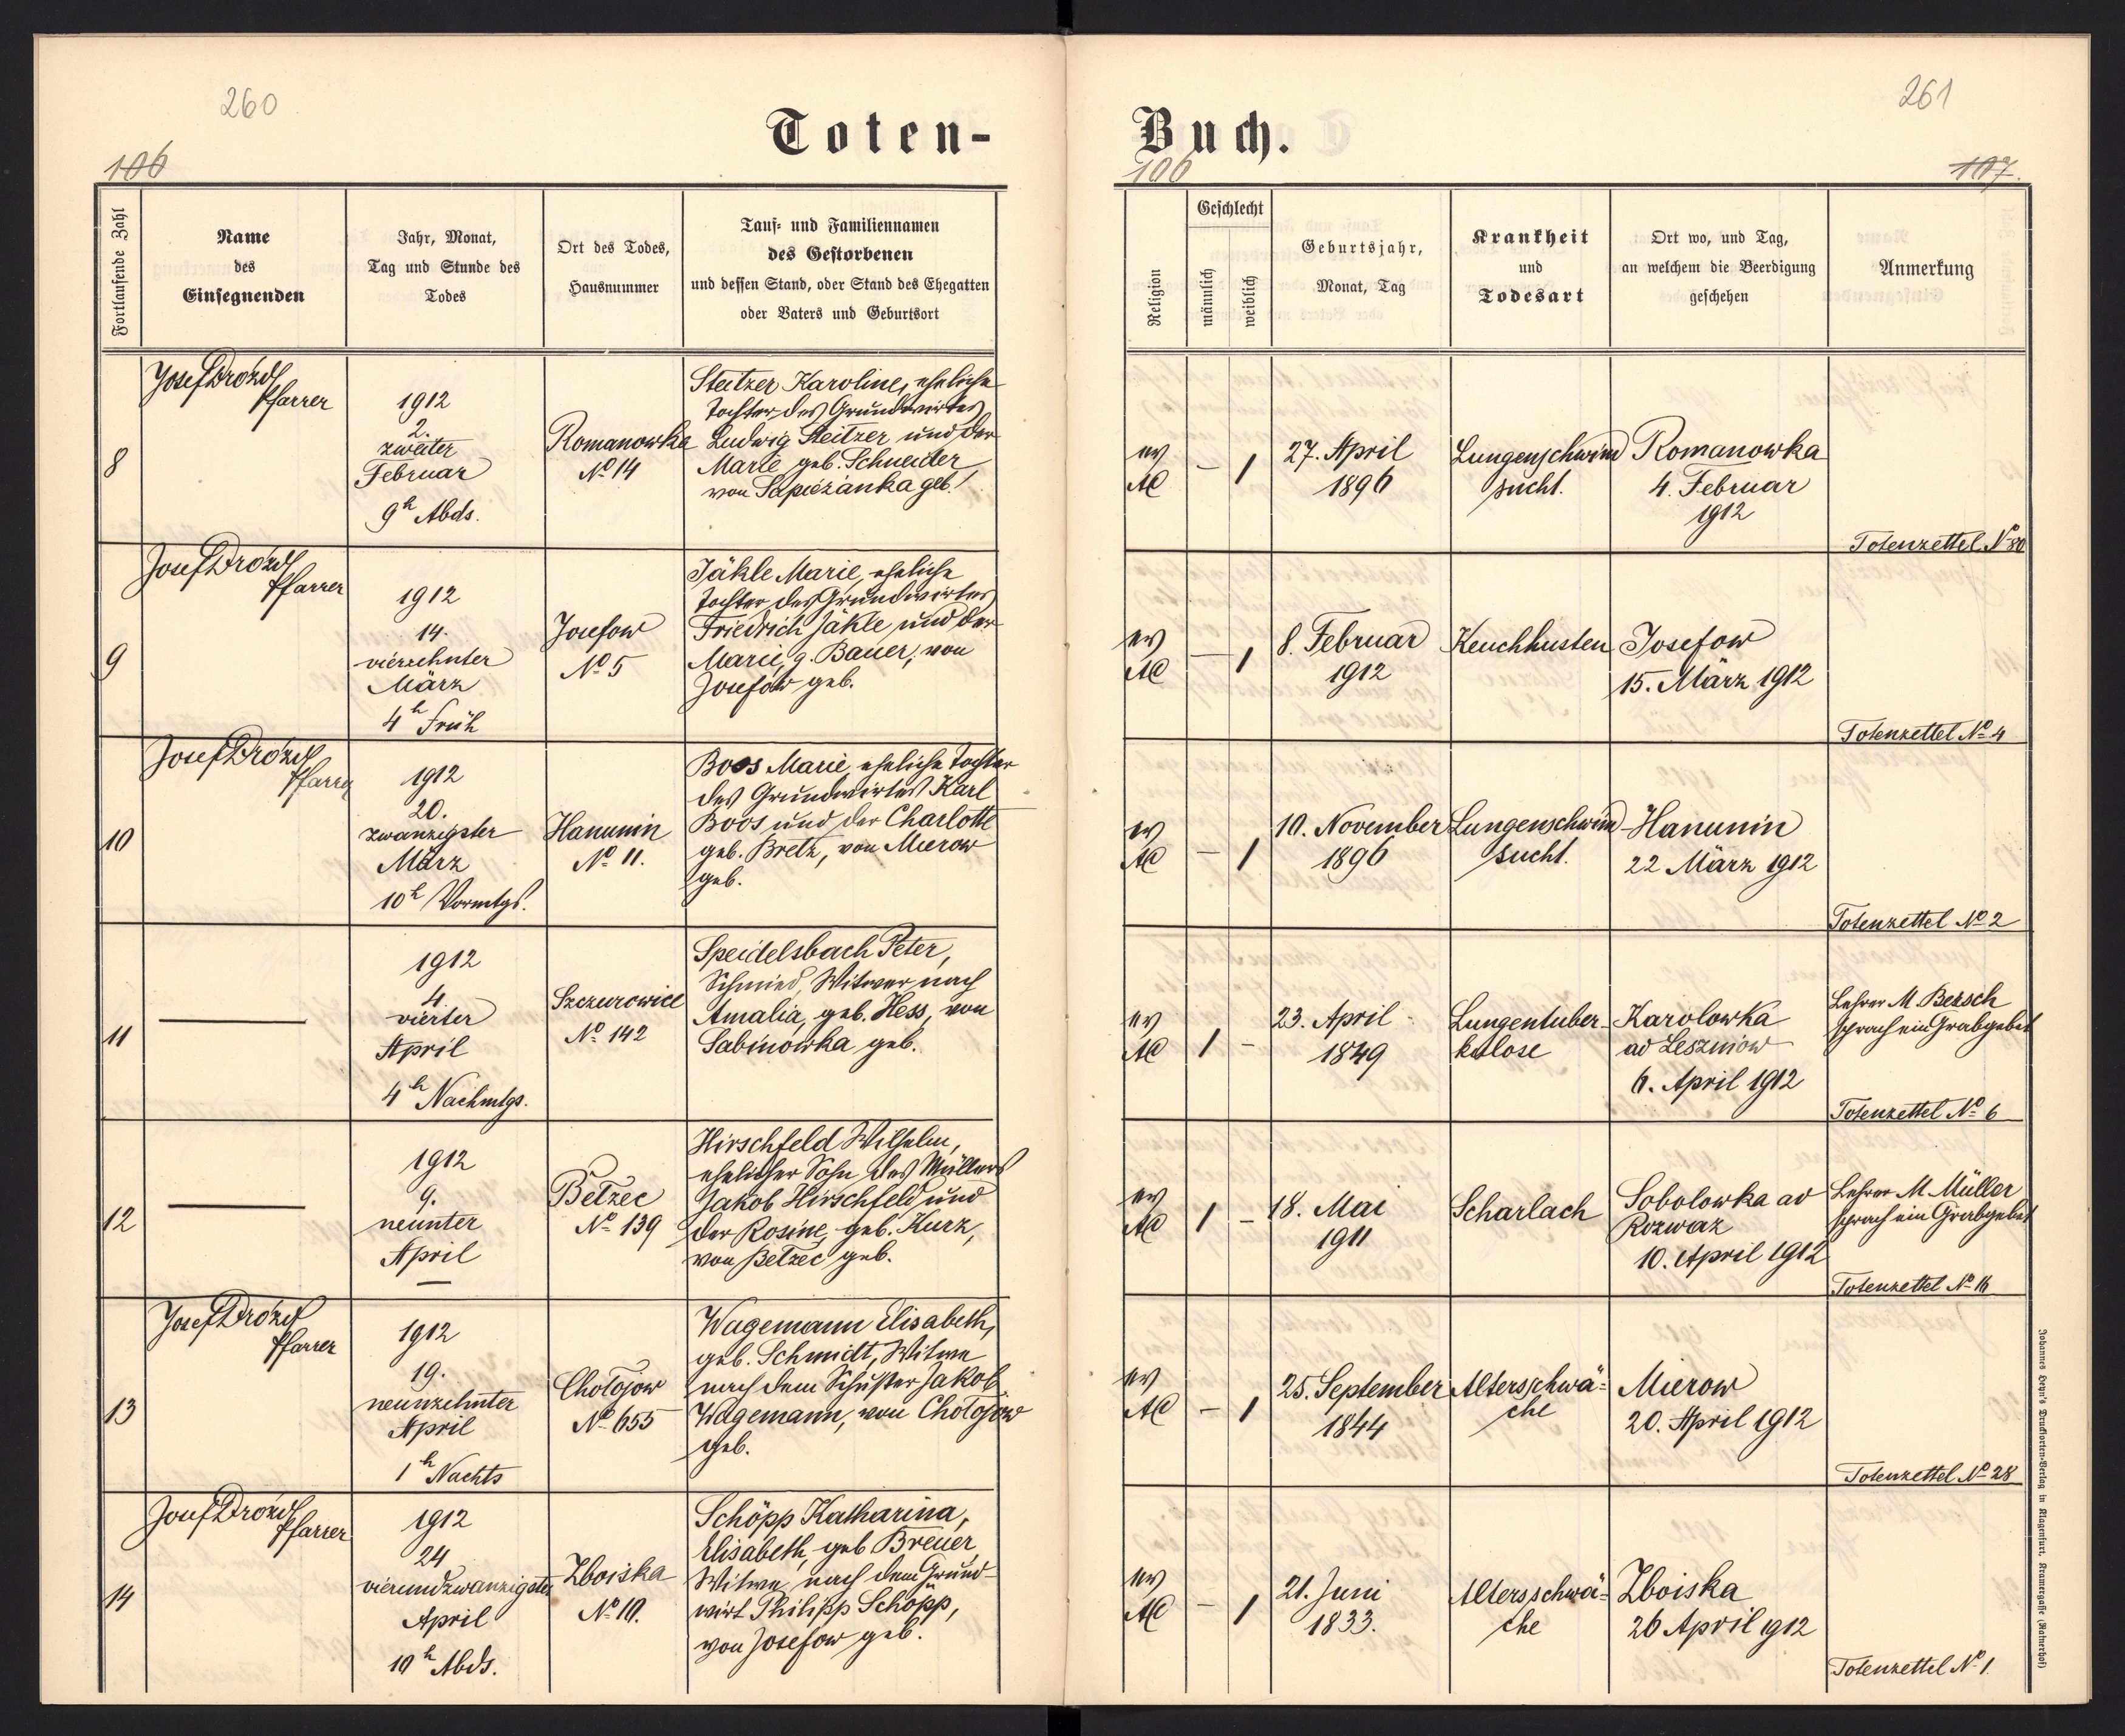 260
261
Toten-
Buch.
106
106
107.
Fortlaufende Zahl
Name
des
Einsegnenden
Jahr, Monat,
Tag und Stunde des
Todes
Ort des Todes,
Hausnummer
Tauf- und Familiennamen
des Gestorbenen
und dessen Stand, oder Stand des Ehegatten
oder Vaters und Geburtsort
Religion
Geschlecht
männlich
weiblich
Geburtsjahr,
Monat, Tag
Krankheit
und
Todesart
Ort wo, und Tag,
an welchem die Beerdigung
geschehen
Anmerkung
8
Josef Drozd
Pfarrer
1912
2.
zweiter
Februar
9h Abds.
Romanowka
No 14
Steitzer Karoline, eheliche
Tochter des Grundwirtes
Ludwig Steitzer und der
Marie geb. Schneider,
von Sapieżanka geb.
ev
AC
– 1
27. April
1896
Lungenschwind
sucht.
Romanowka
4. Februar
1912
Totenzettel No 80
9
Josef Drozd
Pfarrer
1912
14.
vierzehnter
März
4h Früh
Josefow
No 5
Jäkle Marie, eheliche
Tochter des Grundwirtes
Friedrich Jäkle und der
Marie, g. Bauer, von
Josefow geb.
ev
AC
– 1
8. Februar
1912
Keuchhusten
Josefow
15. März 1912
Totenzettel No 4
10
Josef Drozd
Pfarrer
1912
20.
zwanzigster
März
10h Vormtgs.
Hanunin
No 11.
Boos Marie, eheliche Tochter
des Grundwirtes Karl
Boos und der Charlotte
geb. Bretz, von Mierow
geb.
ev
AC
– 1
10. November
1896
Lungenschwind
sucht.
Hanunin
22 März 1912
Totenzettel No 2
11
1912
4.
vierter
April
4h Nachmtgs.
Szczurowice
No 142
Speidelsbach Peter,
Schmied, Witwer nach
Amalia, geb. Hess, von
Sabinowka geb.
ev
AC
1 –
23. April
1849
Lungentuber-
kulose
Karolowka
ad Leszniow
6. April 1912
Lehrer M. Bersch
sprach ein Grabgebet
Totenzettel No 6
12
1912
9.
neunter
April
—
Bełzec
No 139
Hirschfeld Wilhelm,
ehelicher Sohn des Müllers
Jakob Hirschfeld und
der Rosine, geb. Kurz,
von Bełzec geb.
ev
AC
1 –
18. Mai
1911
Scharlach
Sobolowka ad
Rozwaz
10. April 1912
Lehrer M. Müller
sprach ein Grabgebet
Totenzettel No 16
13
Josef Drozd
Pfarrer
1912
19.
neunzehnter
April
1h Nachts
Chołojow
No 655
Wagemann Elisabeth,
geb. Schmidt, Witwe
nach dem Schuster Jakob
Wagemann, von Chołojow
geb.
ev
AC
– 1
25. September
1844
Altersschwä-
che
Mierow
20. April 1912
Totenzettel No 28
14
Josef Drozd
Pfarrer
1912
24
vierundzwanzigster
April
10h Abds.
Zboiska
No 10.
Schöpp Katharina,
Elisabeth, geb Breuer,
Witwe nach dem Grund-
wirt Philipp Schöpp,
von Josefow geb.
ev
AC
– 1
21. Juni
1833.
Altersschwä-
che
Zboiska
26 April 1912
Totenzettel No 1.
Johannes Heyn's Drucksorten-Verlag in Klagenfurt, Kramergasse (Rainerhof)